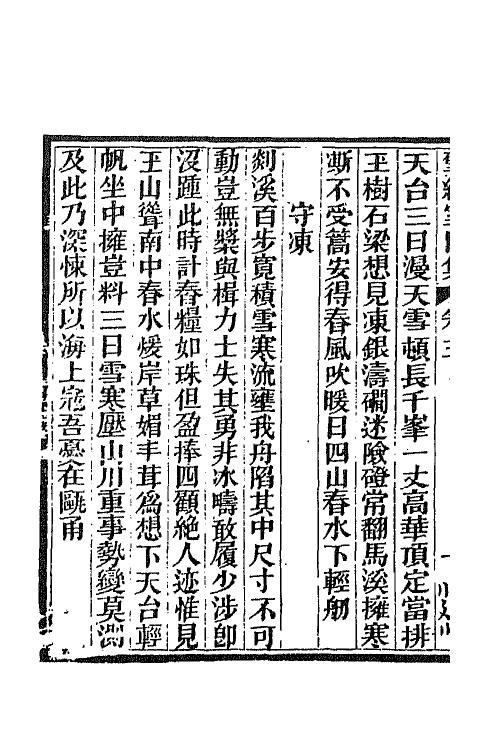 天台三日漫天雪頓長千峯一丈高華頂定當排
玉樹石梁想見凍銀濤磵迷險磴常翻馬溪擁寒
澌不受篙安得春風吹暖日四山春水下輕舠
守凍
剡溪百步寬積雪寒流壅我舟陷其中尺寸不可
動豈無槳與楫力士失其勇非冰疇敢履少涉卽
沒踵此時計舂糧如珠但盈捧四顧絶人迹惟見
玉山聳南中春水煖岸草媚丰茸爲想下天台輕
帆坐中擁豈料三日雪寒壓山川重事勢變莫測
及此乃深悚所以海上寇吾憂在甌甬